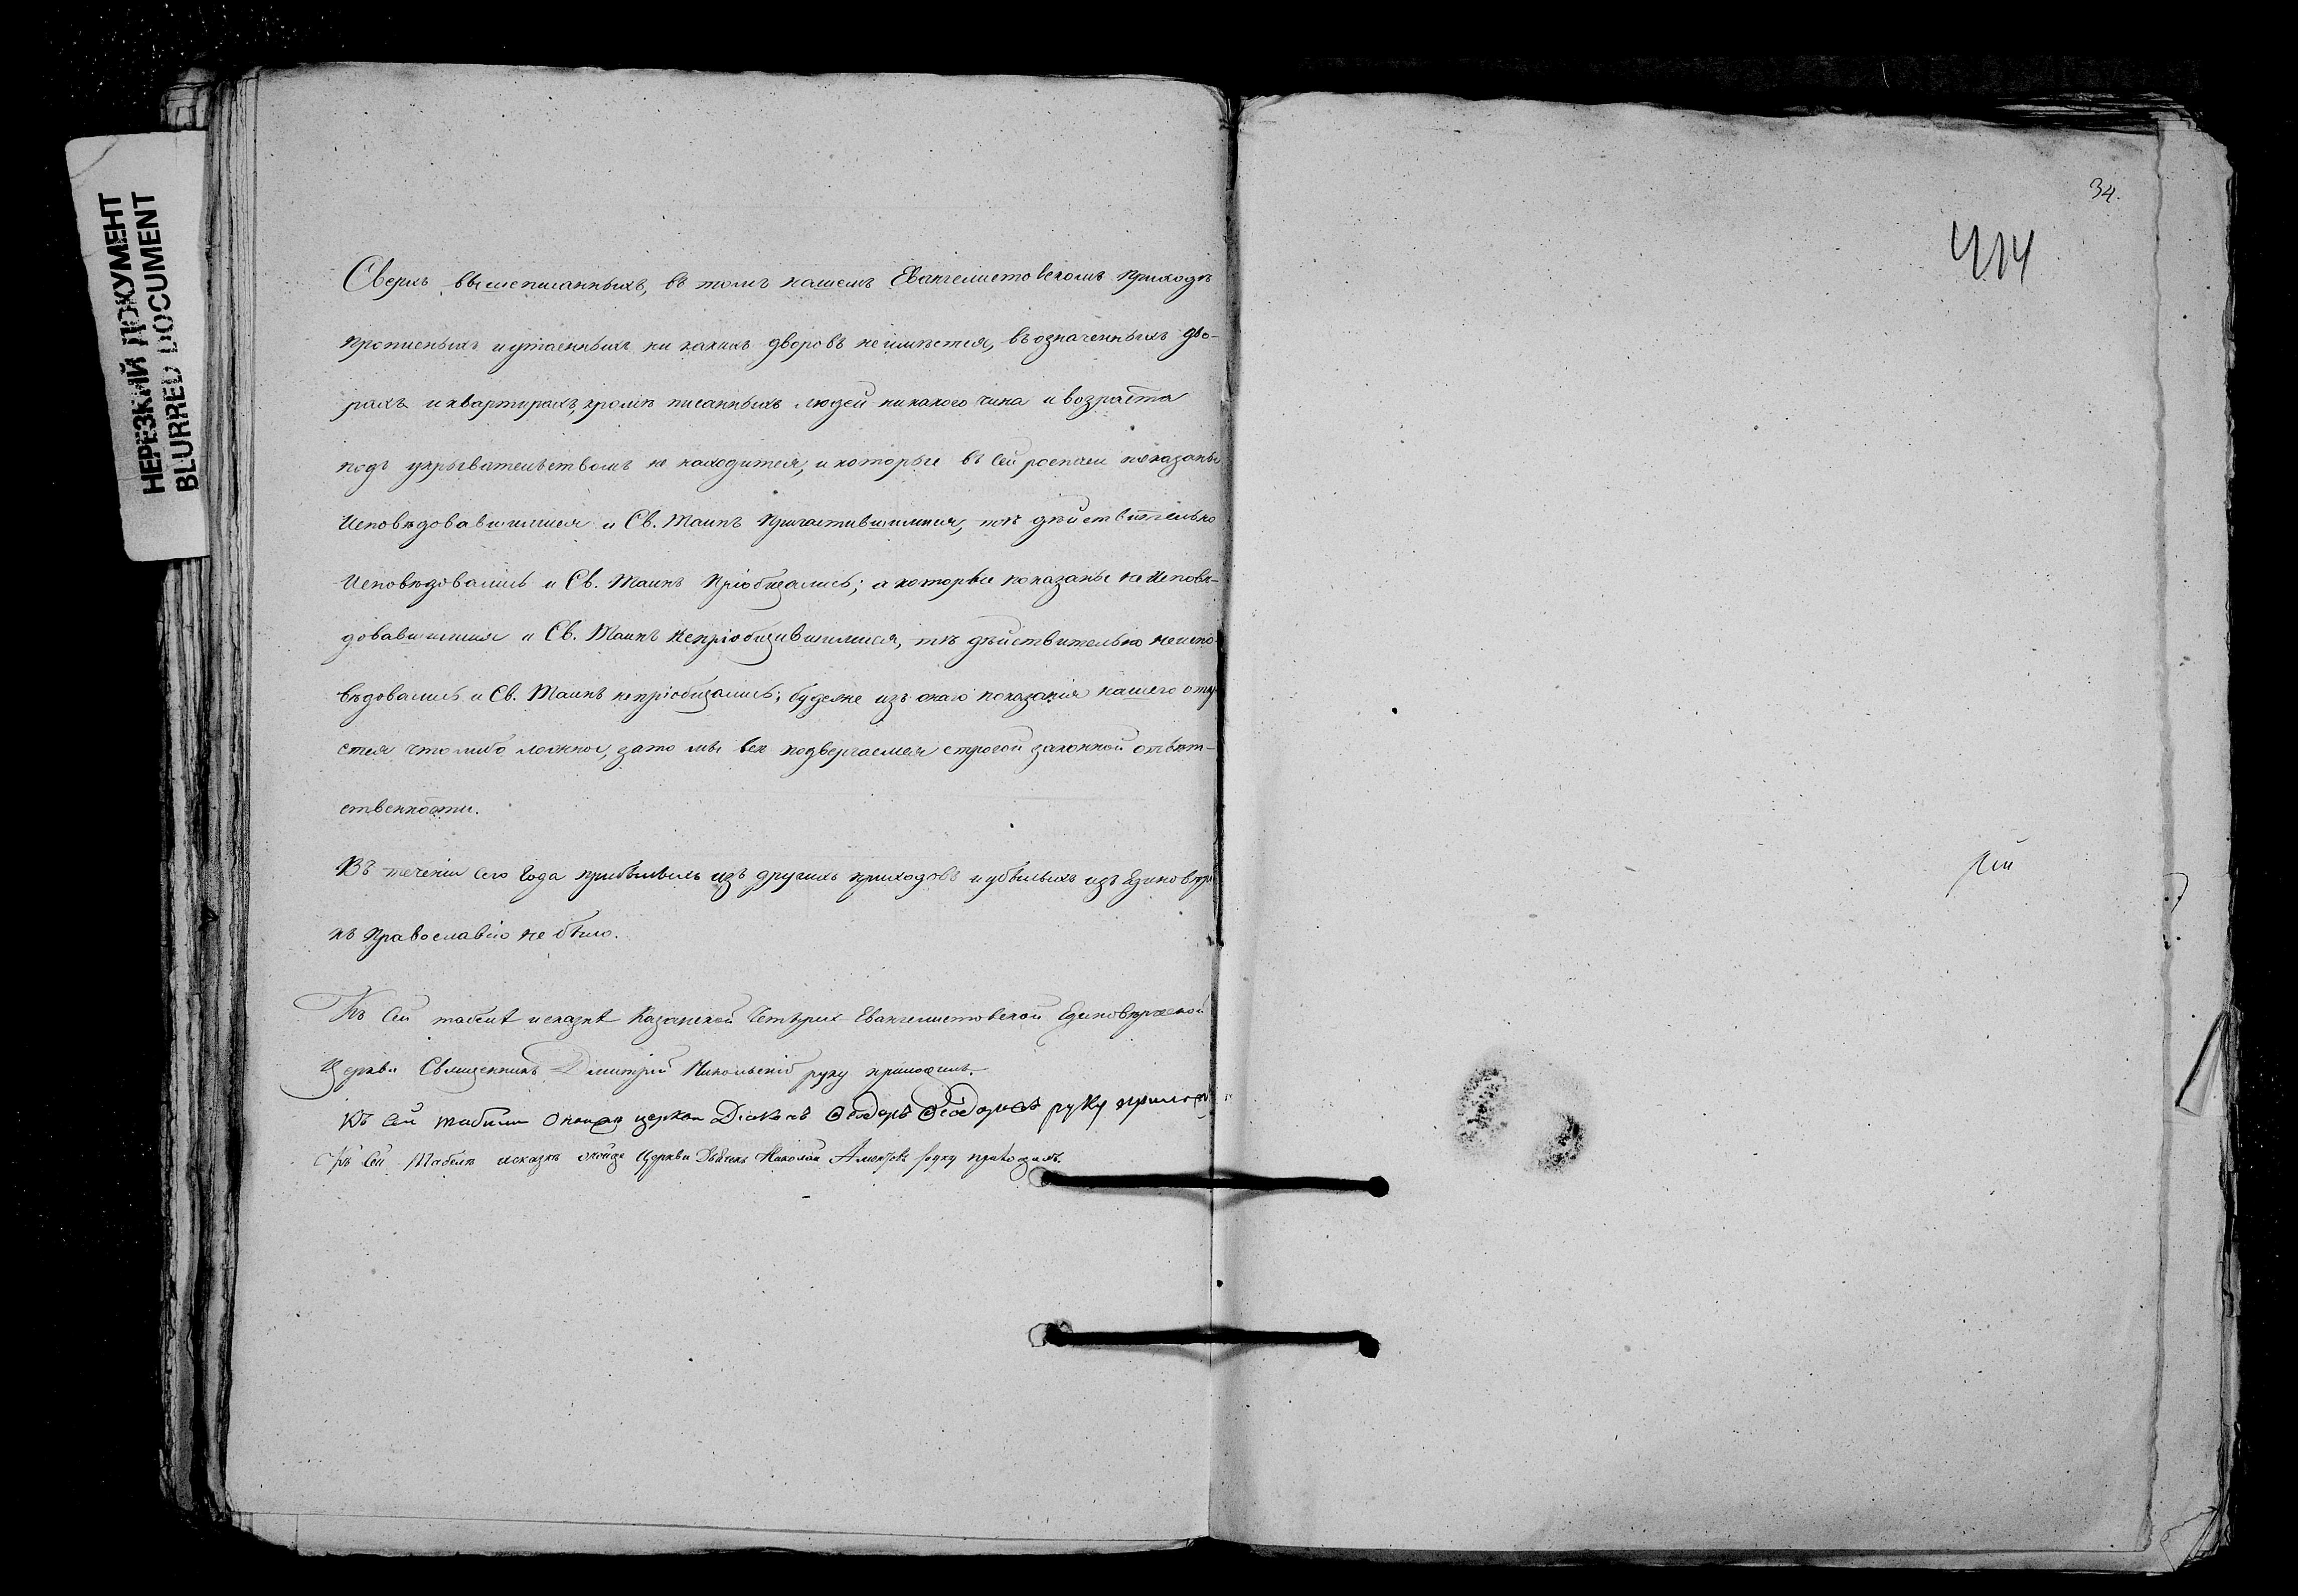 НЕРЕЗКИЙ ДОКУМЕНТ
BLURRED DOCUMENT
Сверхъ вышеписанныхъ, въ томъ нашемъ Евангелистовскомъ приходѣ
прописныхъ и утаенныхъ ни какихъ дворовъ неимѣется, въ означенныхъ дво-
рахъ и квартирахъ, кромѣ писанныхъ людей никакого чина и возраста
подъ укрывательствомъ не находится, и которые въ сей росписи показаны
Исповѣдовавшимися и Св. Таинъ Причастившимися, тѣ дѣйствительно
Исповѣдовались и Св. Таинъ Пріобщались; а которые показаны не Исповѣ-
довавшимися и Св. Таинъ Непріобщившимися, тѣ дѣйствительно неиспо-
вѣдовались и Св. Таинъ непріобщались; будеже изъ онаго показанія нашего оты
стся что либо ложное, зато мы всѣ подвергаемся строгой законной отвѣт-
ственности.
Въ теченіи сего года прибылыхъ изъ другихъ приходовъ и убылыхъ изъ Единовѣрі
къ Православію не было.
Къ сей табели и сказкѣ Казанской Четырех-Евангелистовской Единовѣрческой
Церкви Священникъ Димитрій Никольскій руку приложилъ.
Къ сей табели оной церкви Діаконъ Ѳеодоръ Ѳеодоровъ руку прилож
Къ сей Табелѣ исказкѣ онойже Церкви Дьячекъ Николай руку приложилъ.
34.
414